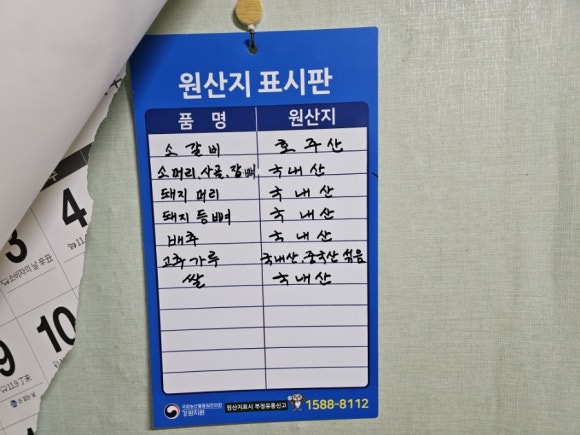 원산지 표시판
품 명 원산지
소 갈비 호 주 산
소머리.사골.잡뼈 국 내 산
돼지 머리 국 내 산
돼지 등뼈 국 내 산
배추 국 내 산
고추가루 국내산.중국산 섞음
쌀 국 내 산
국립농산물품질관리원
강원지원
원산지표시 부정유통신고 1588-8112
4
3
소비자의 날
9
10
11.9